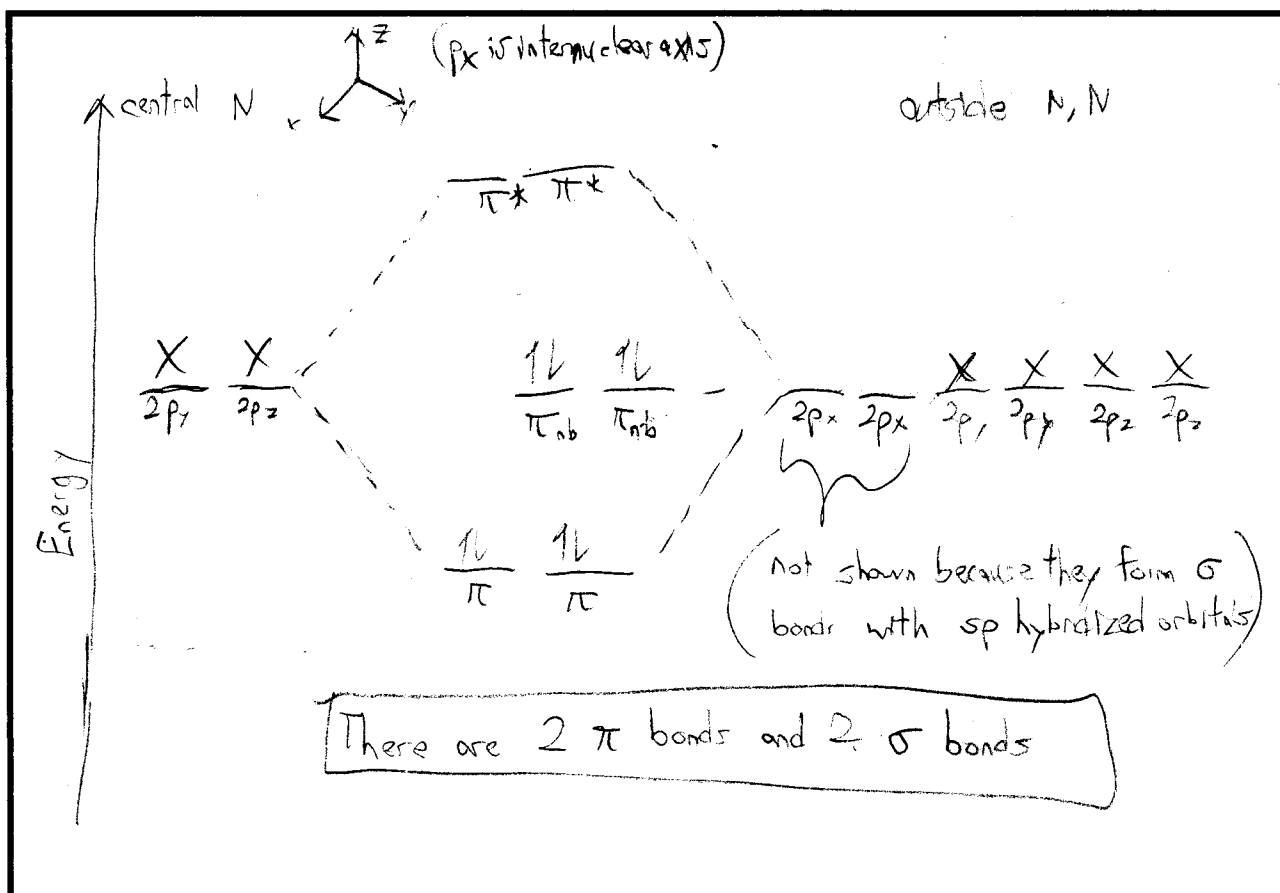 z (px is internuclear axis)
central N x y outside N, N
π* π*
X X 1L 1L X X X X
2py 2pz πnb πnb 2px 2px 2py 2py 2pz 2pz
Energy
1L 1L
π π
(not shown because they form σ
bonds with sp hybridized orbitals)
There are 2 π bonds and 2 σ bonds